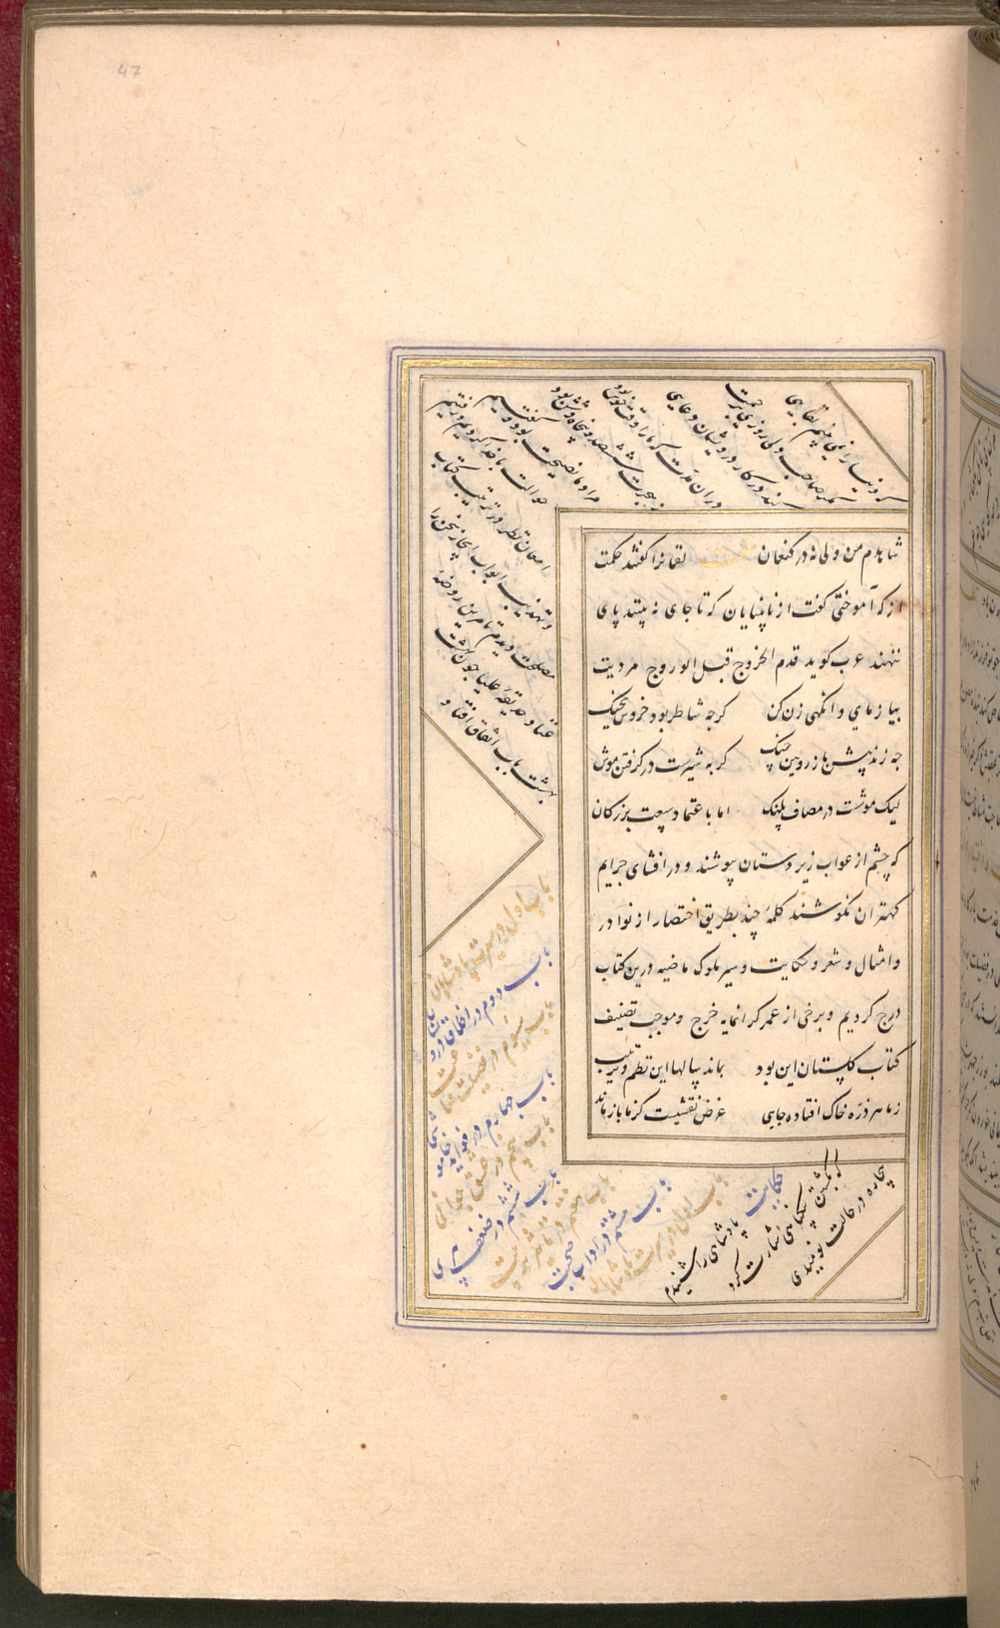 47
شاهدم من ولی نه در کنعان لقمانرا گفتند حکمت
از که آموختی گفت از نابینایان که تا جای نه بینند پای
ننهند عرب گوید قدم الخروج قبل الولوج مردیت
بیازمای وانگهی زن کن گرچه شاطر بود خروس بجنگ
چه زند پیش باز رویین چنگ گربه شیرست در گرفتن موش
لیک موشست در مصاف پلنگ اما باعتماد وسعت بزرگان
که چشم از عوایب زیردستان بپوشند و در افشای جرایم
کهتران نکوشند کلمهٔ چند بطریق اختصار از نوادر
و امثال و شعر و حکایت و سیر ملوک ماضیه درین کتاب
درج کردیم و برخی از عمر گرانمایه خرج و موجب تصنیف
کتاب گلستان این بود بماند سالها این نظم و ترتیب
ز ما هر ذره خاک افتاده جایی غرض نقشیست کز ما باز ماند
که هستی را نمی بینم بقایی
مگر صاحب دلی روزی برحمت
کند در کار درویشان دعایی
در آن مدت که ما را وقت خوش بود
ز هجرت ششصد و پنجاه و شش بود
مراد ما نصیحت بود و گفتیم
حوالت با خدا کردیم و رفتیم
امعان نظر در ترتیب کتاب
و تهذیب ابواب ایجاز سخن را
مصلحت دیدم تا مر این روضهٔ
غنا و حدیقهٔ علیا چون بهشت
بهشت باب اتفاق افتاد
باب اول در سیرت پادشاهان
باب دوم در اخلاق درویشان
باب سیوم در فضیلت قناعت
باب چهارم در فواید خاموشی
باب پنجم در عشق و جوانی
باب ششم در ضعف پیری
باب هفتم در تاثیر تربیت
باب هشتم در آداب صحبت
باب اول در سیرت پادشاهان
حکایت پادشاهی را شنیدم
که بکشتن بیگناهی اشارت کرد
بیچاره در حالت نومیدی